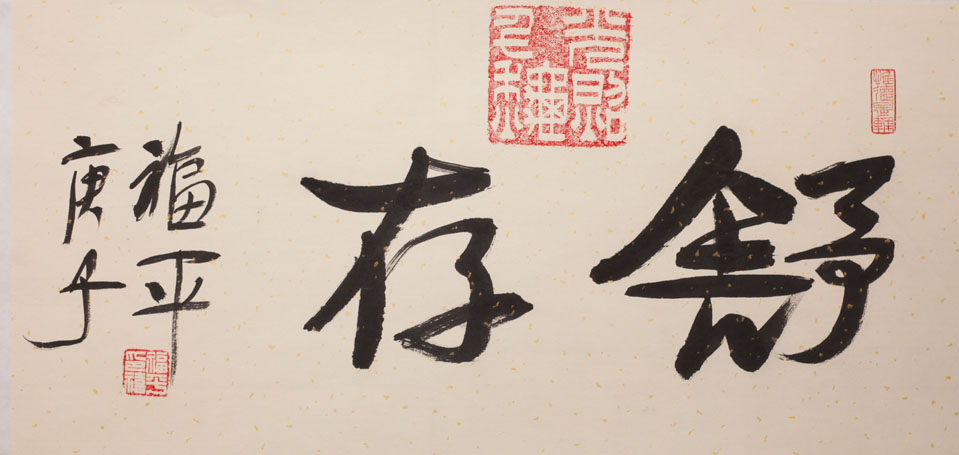 舒存
福平
庚子